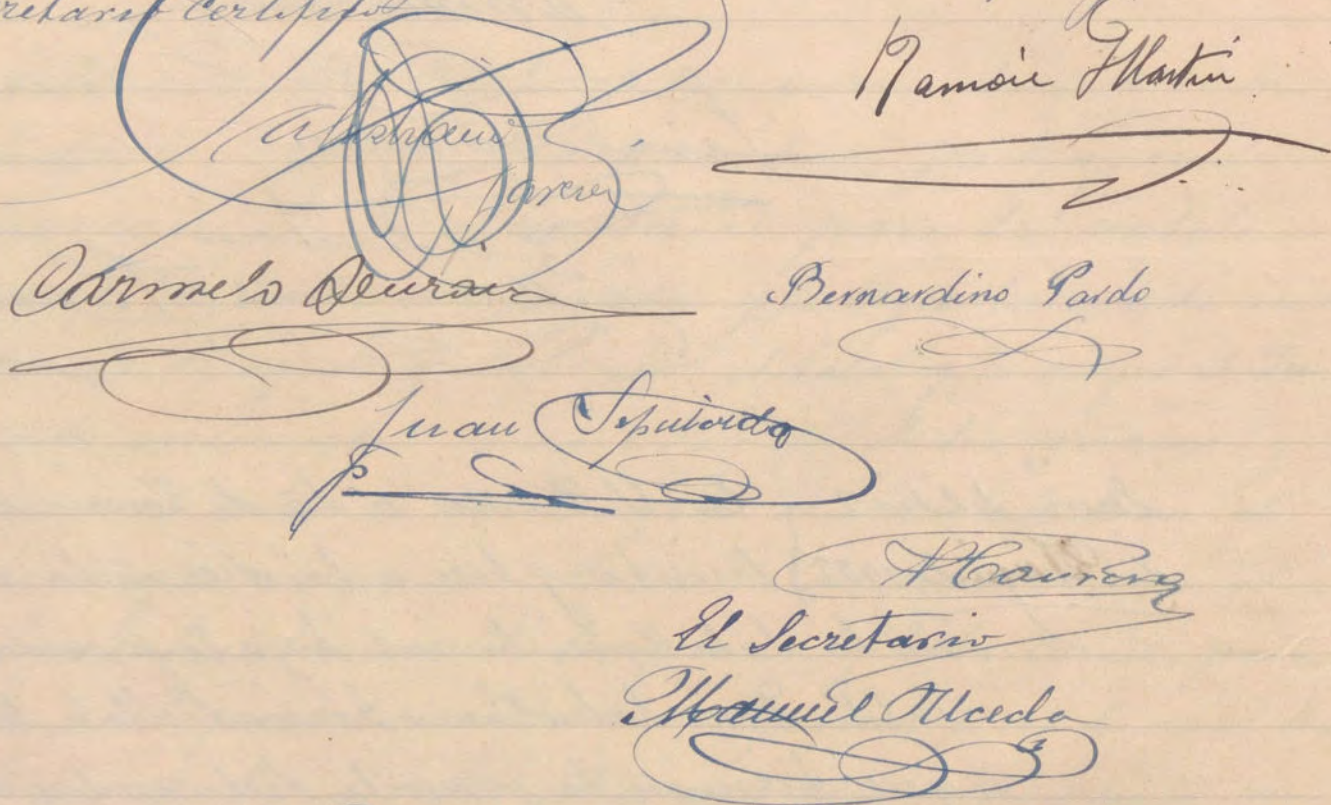 retario Certifico
Ramón Martin
García
Carmelo Durán
Bernardino Pardo
Juan Sepúlveda
El Secretario
Manuel Uceda